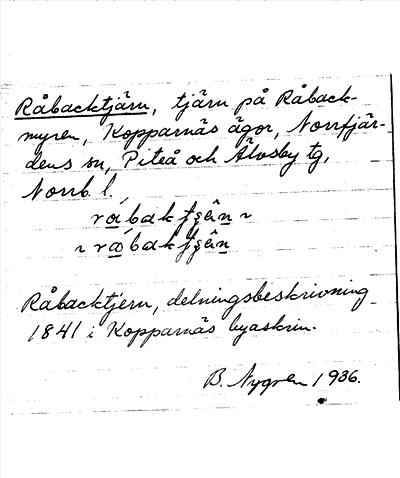 Råbacktjärn, tjärn på Råback-
myren, Kopparnäs ägor, Norrfjär-
dens sn, Piteå och Älvsby tg,
Norrb. l.
Råbacktjern, delningsbeskrivning
1841 i Kopparnäs byaskrin.
B. Nygren 1936.